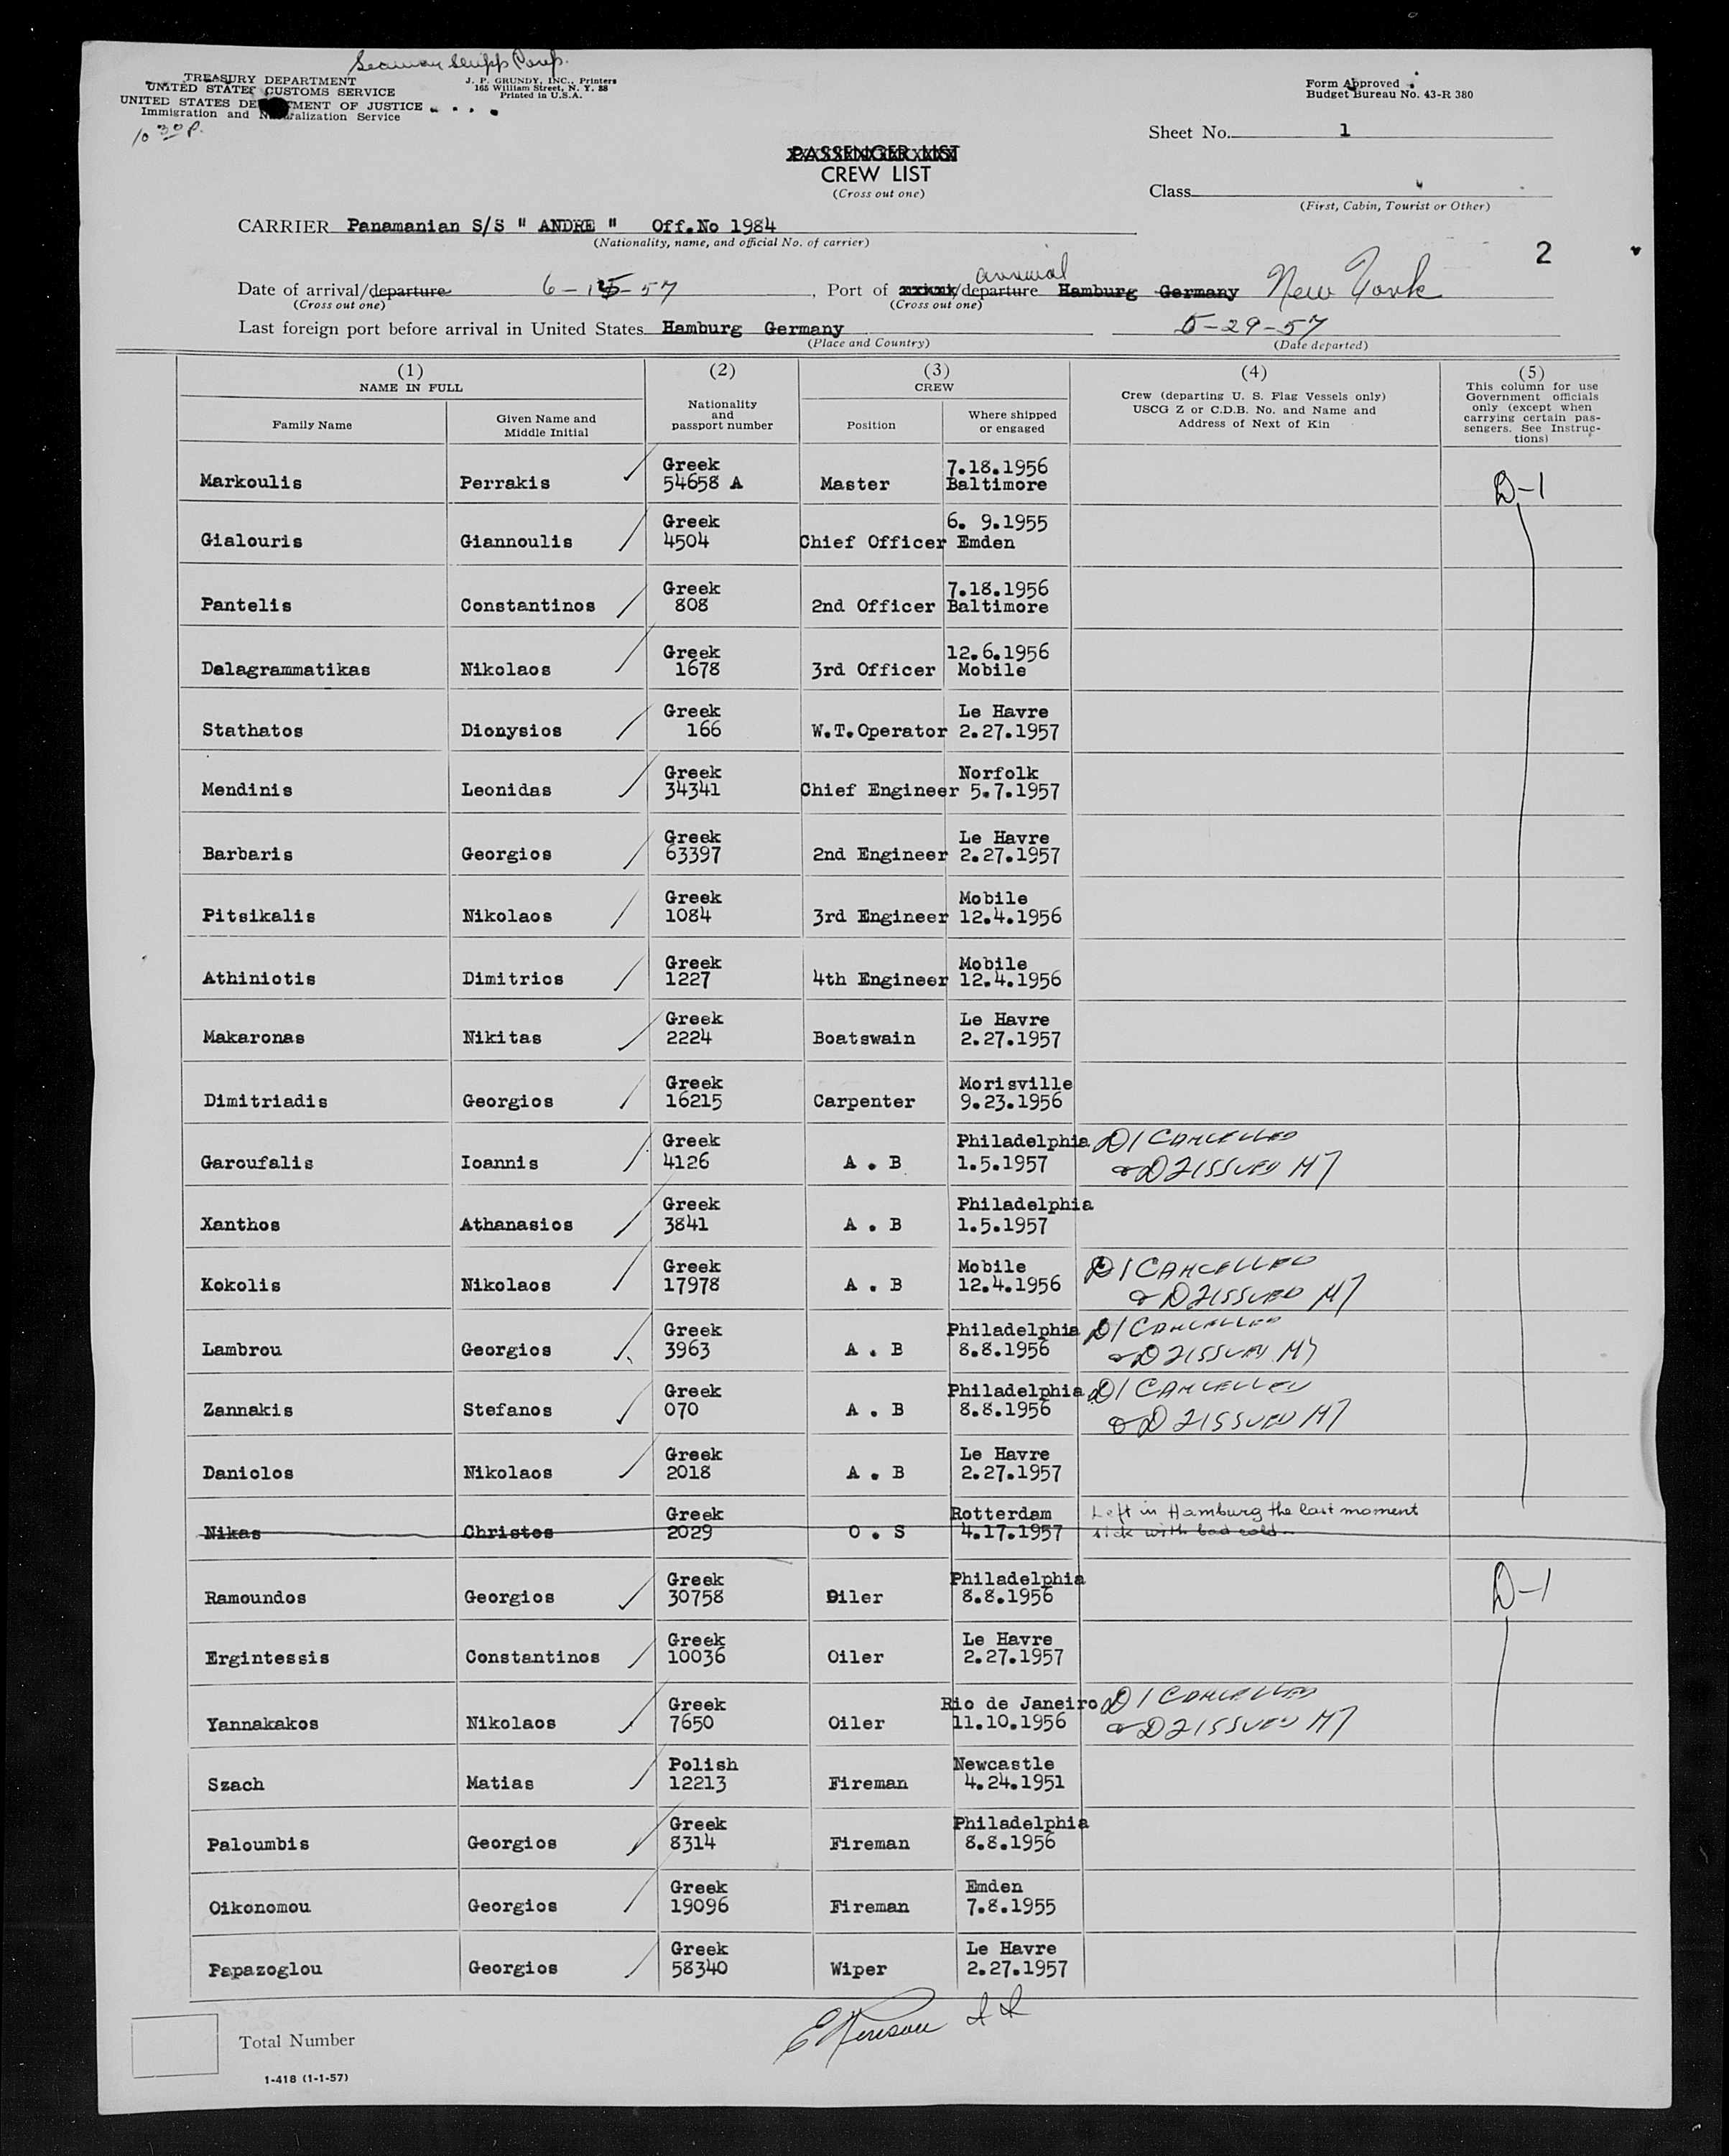 TREASURY DEPARTMENT
UNITED STATES CUSTOMS SERVICE
UNITED STATES DE MENT OF JUSTICE
Immigration and N ralization Service
10 30 P.
J. P. GRUNDY, INC., Printers
165 William Street, N. Y. 38
Printed in U.S.A.
Form Approved
Budget Bureau No. 43-R 380
Sheet No. 1
PASSENGER LIST
CREW LIST
(Cross out one)
Class
(First, Cabin, Tourist or Other)
CARRIER Panamanian S/S " ANDRE " Off.No 1984
(Nationality, name, and official No. of carrier)
2
arrival
Date of arrival/departure 6-15-57, Port of /departure Hamburg Germany New York
(Cross out one) (Cross out one)
Last foreign port before arrival in United States Hamburg Germany 5-29-57
(Place and Country) (Date departed)
(1) NAME IN FULL
Family Name
Given Name and Middle Initial
(2) Nationality and passport number
(3) CREW
Position
Where shipped or engaged
(4) Crew (departing U. S. Flag Vessels only) USCG Z or C.D.B. No. and Name and Address of Next of Kin
(5) This column for use Government officials only (except when carrying certain passengers. See Instructions)
Greek 7.18.1956
Markoulis Perrakis 54658 A Master Baltimore D-1
Greek 6. 9.1955
Gialouris Giannoulis 4504 Chief Officer Emden
Greek 7.18.1956
Pantelis Constantinos 808 2nd Officer Baltimore
Greek 12.6.1956
Dalagrammatikas Nikolaos 1678 3rd Officer Mobile
Greek Le Havre
Stathatos Dionysios 166 W.T.Operator 2.27.1957
Greek Norfolk
Mendinis Leonidas 34341 Chief Engineer 5.7.1957
Greek Le Havre
Barbaris Georgios 63397 2nd Engineer 2.27.1957
Greek Mobile
Pitsikalis Nikolaos 1084 3rd Engineer 12.4.1956
Greek Mobile
Athiniotis Dimitrios 1227 4th Engineer 12.4.1956
Greek Le Havre
Makaronas Nikitas 2224 Boatswain 2.27.1957
Greek Morisville
Dimitriadis Georgios 16215 Carpenter 9.23.1956
Greek Philadelphia D1 CANCELLED
Garoufalis Ioannis 4126 A . B 1.5.1957 & D2 ISSUED
Greek Philadelphia
Xanthos Athanasios 3841 A . B 1.5.1957
Greek Mobile D1 CANCELLED
Kokolis Nikolaos 17978 A . B 12.4.1956 & D2 ISSUED
Greek Philadelphia D1 CANCELLED
Lambrou Georgios 3963 A . B 8.8.1956 & D2 ISSUED
Greek Philadelphia D1 CANCELLED
Zannakis Stefanos 070 A . B 8.8.1956 & D2 ISSUED
Greek Le Havre
Daniolos Nikolaos 2018 A . B 2.27.1957
Greek Rotterdam Left in Hamburg the last moment
Nikas Christos 2029 O . S 4.17.1957 sick with bad cold
Greek Philadelphia
Ramoundos Georgios 30758 Oiler 8.8.1956 D-1
Greek Le Havre
Ergintessis Constantinos 10036 Oiler 2.27.1957
Greek Rio de Janeiro D1 CANCELLED
Yannakakos Nikolaos 7650 Oiler 11.10.1956 & D2 ISSUED
Polish Newcastle
Szach Matias 12213 Fireman 4.24.1951
Greek Philadelphia
Paloumbis Georgios 8314 Fireman 8.8.1956
Greek Emden
Oikonomou Georgios 19096 Fireman 7.8.1955
Greek Le Havre
Papazoglou Georgios 58340 Wiper 2.27.1957
Total Number
1-418 (1-1-57)